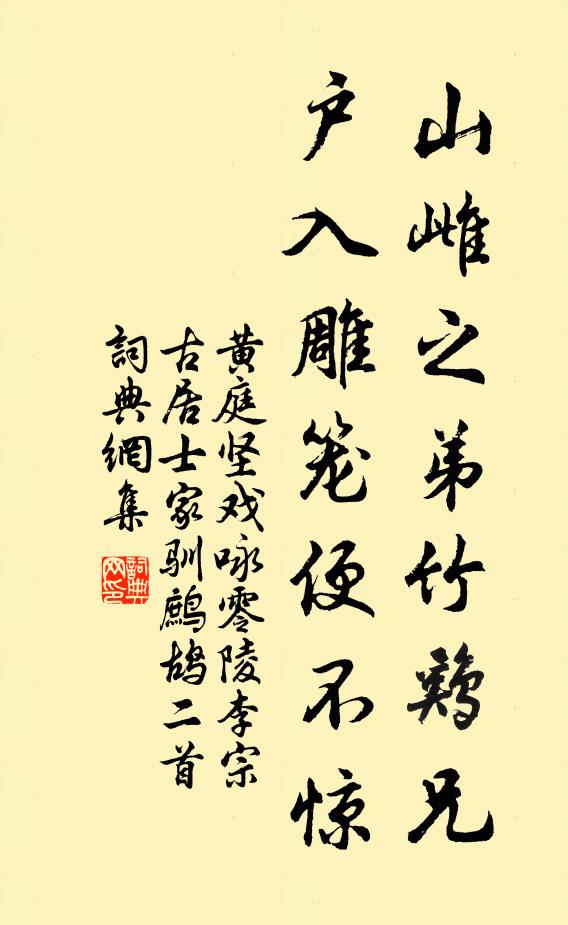 山雌之弟竹鷄兄
户入雕笼便不惊
黄庭坚戏咏零陵李宗
古居士家驯鷓鴣二首
詞典網集
詞典
网印